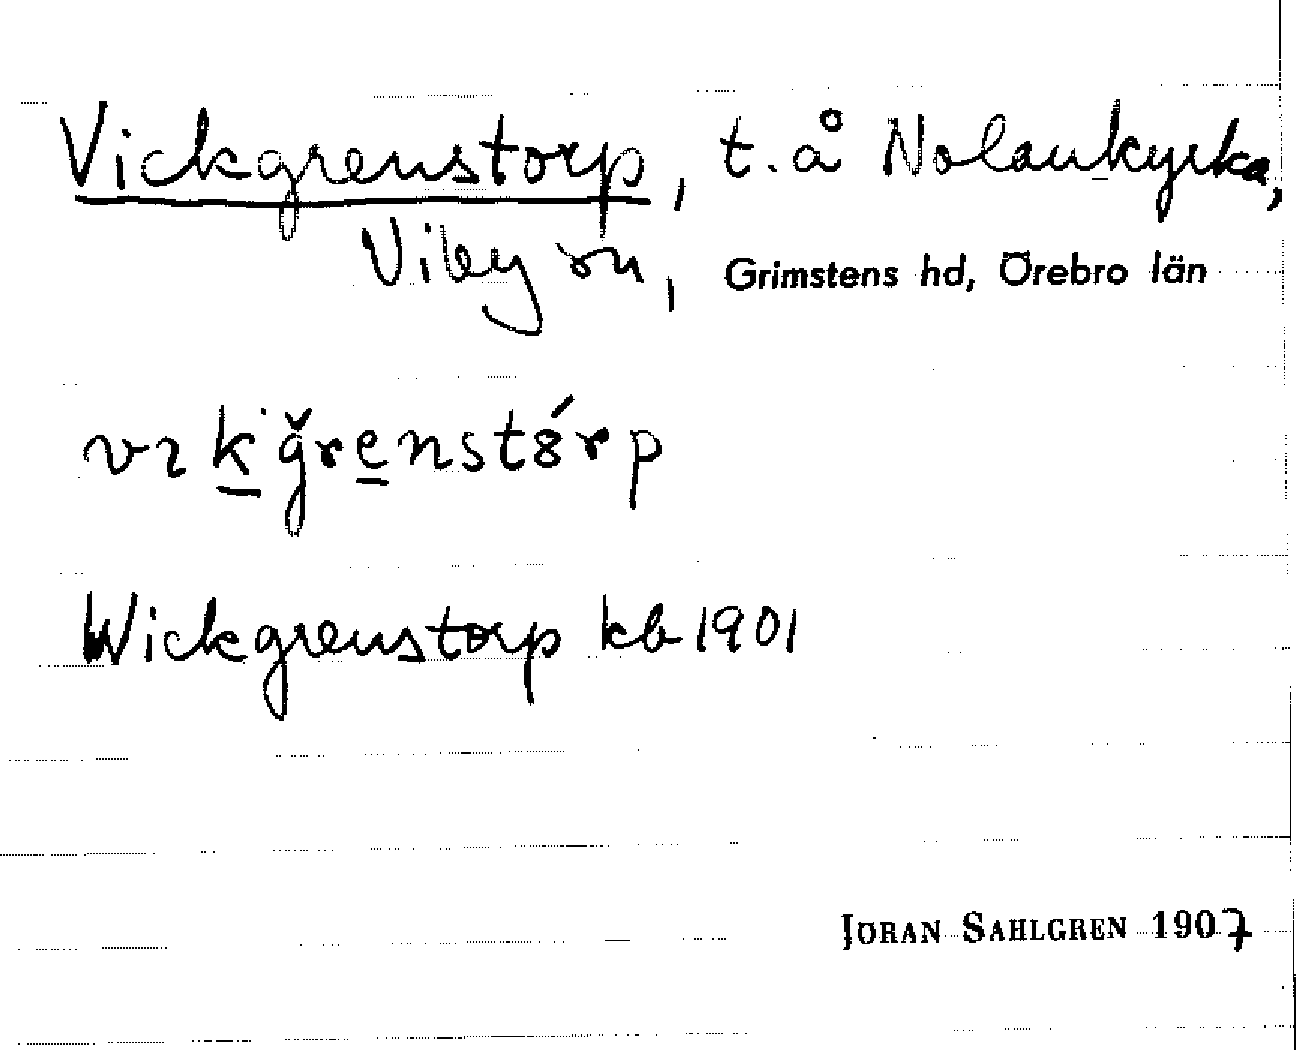 Vickgrenstorp, t. å Nolankyrka,
Viby sn, Grimstens hd, Örebro län
vık̲ğre̲nstȣ́rp
Wickgrenstorp kb 1901
JÖRAN SAHLGREN 1907